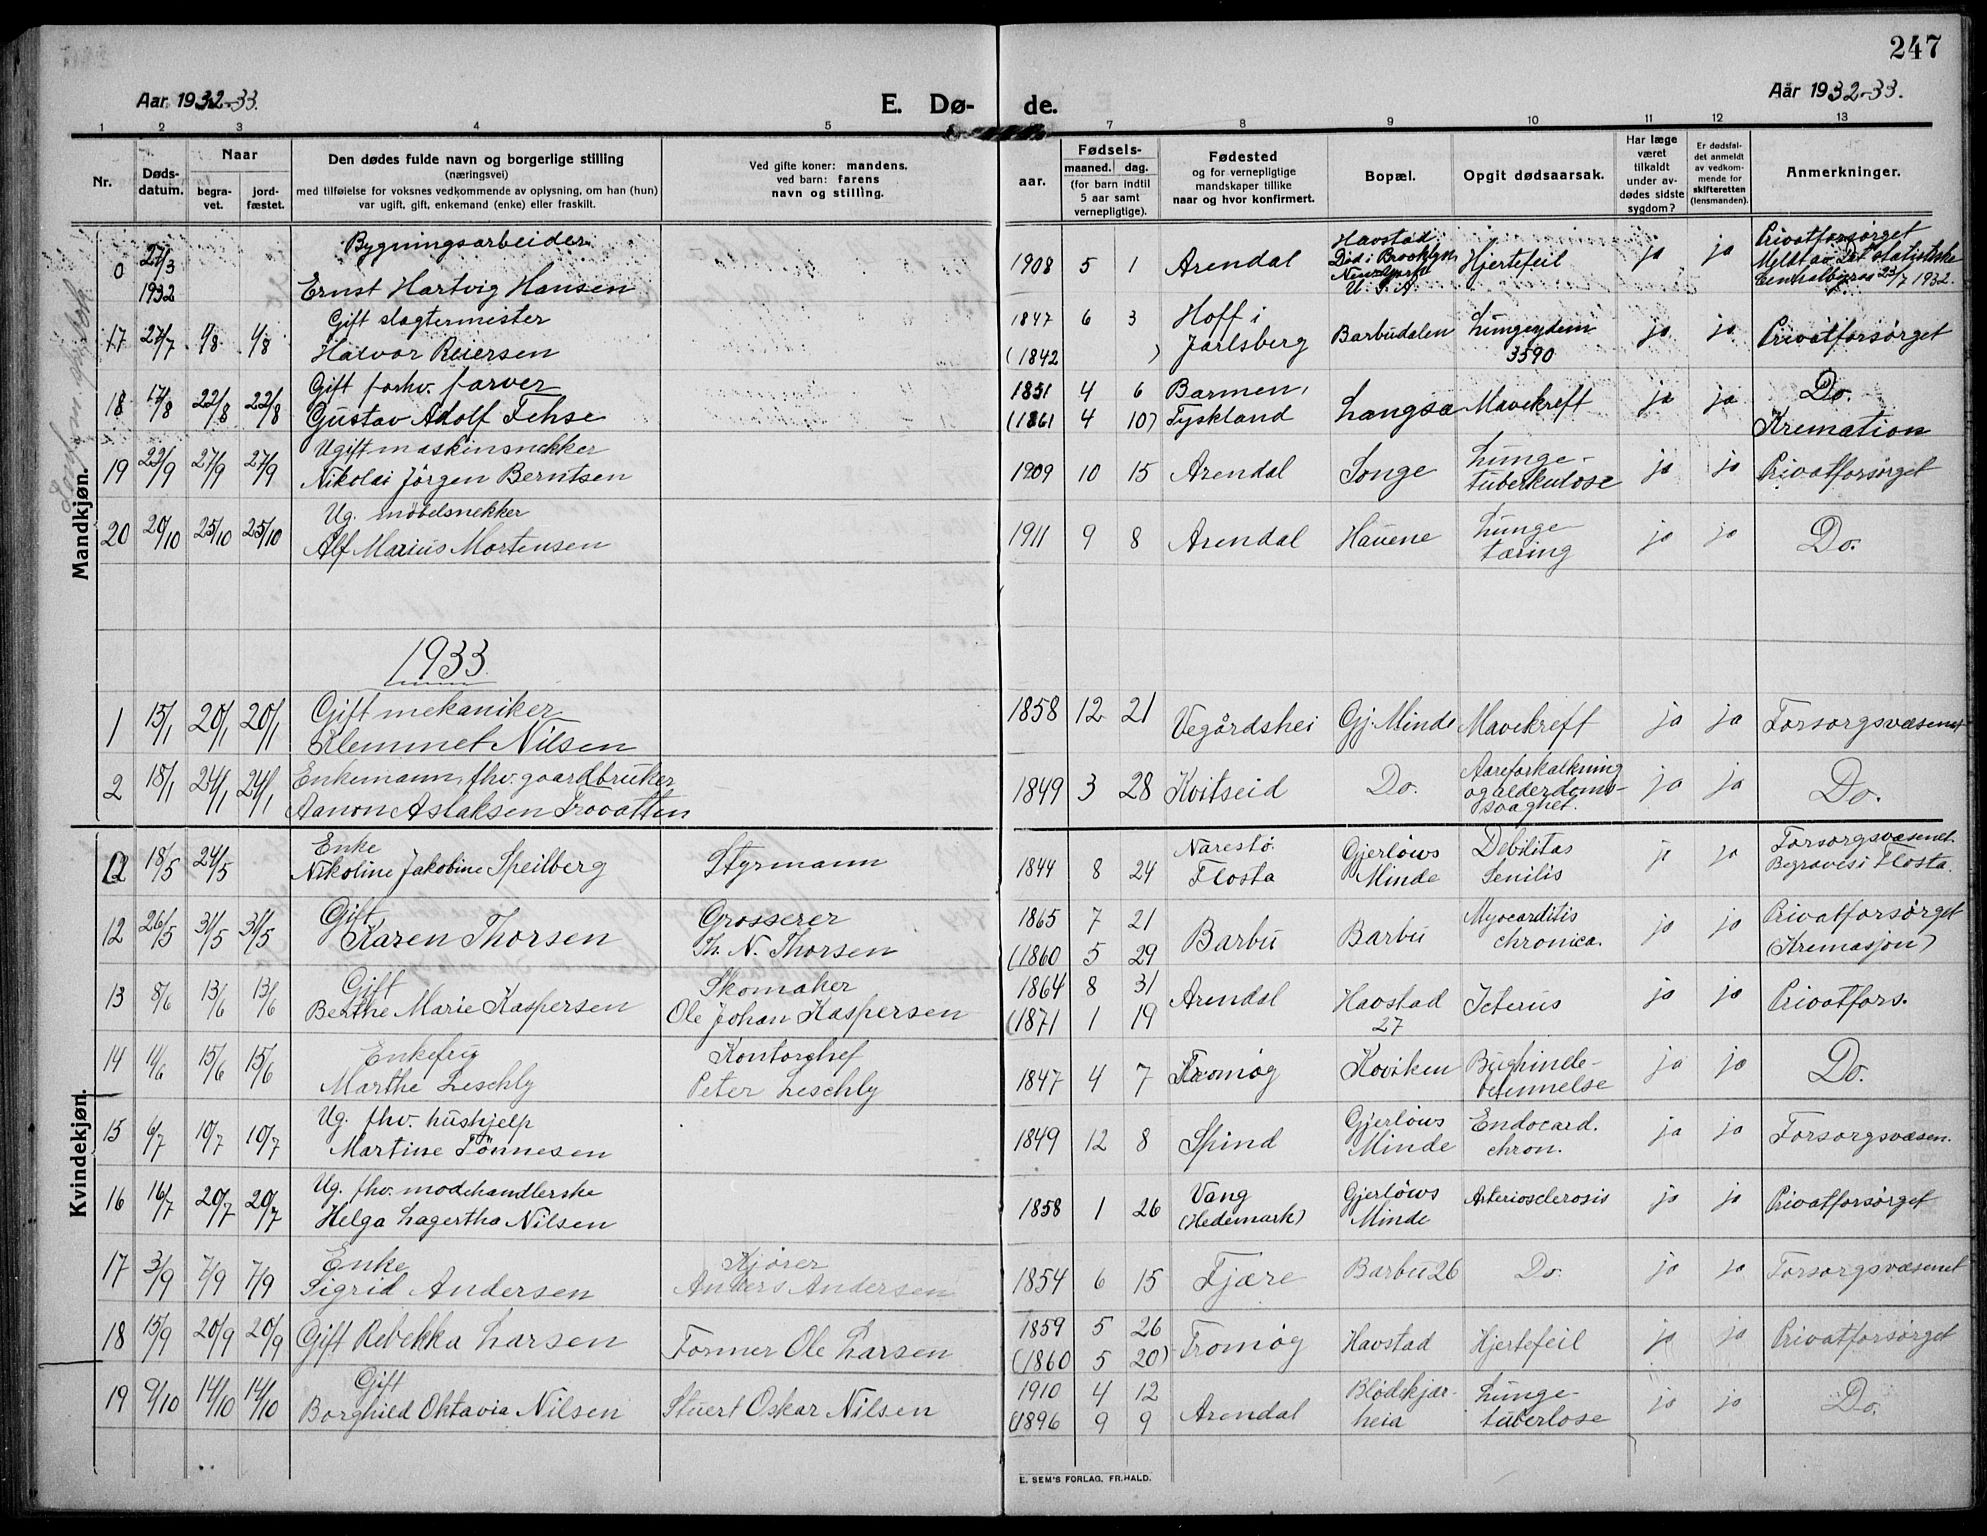 247
Aar 1932-33. E. Dø- de. Aar 1932-33.
1 2 3 4 5 7 8 9 10 11 12 13
Nr. Døds-datum. Naar begra-vet. jord-fæstet. Den dødes fulde navn og borgerlige stilling (næringsvei) med tilføielse for voksnes vedkommende av oplysning, om han (hun) var ugift, gift, enkemand (enke) eller fraskilt. Ved gifte koner: mandens. ved barn: farens navn og stilling. aar. Fødsels- maaned. dag. (for barn indtil 5 aar samt vernepligtige). Fødested og for vernepligtige mandskaper tillike naar og hvor konfirmert. Bopæl. Opgit dødsaarsak. Har læge været tilkaldt under av-dødes sidste sygdom? Er dødsfal-det anmeldt av vedkom-mende for skifteretten (lensmanden). Anmerkninger.
Mandkjøn.
0 27/3 1932 Bygningsarbeider Ernst Hartvig Hansen 1908 5 1 Arendal Havstad Død i Brooklyn U.S.A. Hjertefeil ja ja Privatforsørget Meldt av Det statistiske Centralbyrå 23/7 1932.
17 27/7 1/8 1/8 Gift slagtermester Halvor Reiersen 1847 6 3 (1842 ) Hoff i Jarlsberg Barbudalen Lungeødem 3590 ja ja Privatforsørget
18 17/8 22/8 22/8 Gift forhv. farver Gustav Adolf Fehse 1851 4 6 (1861 4 10) Barmen, Tyskland Langsæ Mavekreft ja ja Do. Kremation
19 22/9 27/9 27/9 Ugift maskinsnekker Nikolai Jörgen Berntsen 1909 10 15 Arendal Songe Lunge-tuberkulose ja ja Privatforsørget
20 20/10 25/10 25/10 Ug. møbelsnekker Alf Marius Mortensen 1911 9 8 Arendal Hauene Lunge tæring ja ja Do.
1933
1 15/1 20/1 20/1 Gift mekaniker Klemmet Nilsen 1858 12 21 Vegårdshei Gj. Minde Mavekreft ja ja Forsorgsvæsenet
2 18/1 24/1 24/1 Enkemann, fhv. gaardbruker Aanon Aslaksen Trovatten 1849 3 28 Kvitseid Do. Aareforkalkning og alderdoms-svaghet. ja ja Do.
Kvindekjøn.
11 18/5 24/5 Enke Nikoline Jakobine Speilberg Styrmann 1844 8 24 Narestø Flosta Gjerløws Minde Debilitas Senilis ja ja Forsorgsvæsenet Begraves i Flosta.
12 26/5 31/5 31/5 Gift Karen Thorsen Grosserer Th. N. Thorsen 1865 7 21 (1860 5 29 Barbu Barbu Myocarditis chronica. ja ja Privatforsørget (Kremasjon)
13 8/6 13/6 13/6 Gift Berthe Marie Kaspersen Skomaker Ole Johan Kaspersen 1864 8 31 (1871 1 19 Arendal Havstad 27 Icterus ja ja Privatfors.
14 11/6 15/6 15/6 Enkefru Marthe Leschly Kontorchef Peter Leschly 1847 4 7 Tromøy Koviken Bughinde-betennelse ja ja Do.
15 6/7 10/7 10/7 Ug. fhv. hushjelp Martine Tönnesen 1849 12 8 Spind Gjerløws Minde Endocard. chron. ja ja Forsorgsvæsen.
16 16/7 20/7 20/7 Ug. fhv. modehandlerske Helga Lagertha Nilsen 1858 1 26 Vang (Hedemark) Gjerløws Minde Arteriosclerosis ja ja Privatforsørget
17 3/9 7/9 7/9 Enke Sigrid Andersen Kjører Anders Andersen 1854 6 15 Fjære Barbu 26 Do. ja ja Forsorgsvæsenet
18 15/9 20/9 20/9 Gift Rebekka Larsen Former Ole Larsen 1859 5 26 (1860 5 20) Tromøy Havstad Hjertefeil ja ja Privatforsørget
19 9/10 14/10 14/10 Gift Borghild Oktavia Nilsen Stuert Oskar Nilsen 1910 4 12 (1896 9 9 Arendal Blödekjær-heia Lunge-tuberlose ja ja Do.
E. SEM'S FORLAG, FR.HALD.